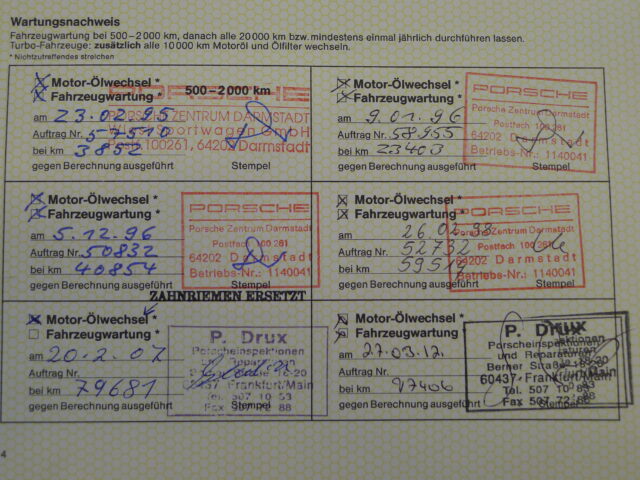 Wartungsnachweis
Fahrzeugwartung bei 500–2 000 km, danach alle 20 000 km bzw. mindestens einmal jährlich durchführen lassen.
Turbo-Fahrzeuge: zusätzlich alle 10 000 km Motoröl und Ölfilter wechseln.
* Nichtzutreffendes streichen
Motor-Ölwechsel *
Fahrzeugwartung *
500–2 000 km
am 23.02.95
Auftrag Nr. 57510
bei km 3852
gegen Berechnung ausgeführt
Stempel
PORSCHE
PORSCHE ZENTRUM DARMSTADT
Sportwagen GmbH
Postf. 100261, 64202 Darmstadt
Motor-Ölwechsel *
Fahrzeugwartung *
am 9.01.96
Auftrag Nr. 58955
bei km 23403
gegen Berechnung ausgeführt
Stempel
PORSCHE
Porsche Zentrum Darmstadt
Postfach 100 261
64202 Darmstadt
Betriebs-Nr.: 1140041
Motor-Ölwechsel *
Fahrzeugwartung *
am 5.12.96
Auftrag Nr. 50832
bei km 40854
gegen Berechnung ausgeführt
Stempel
PORSCHE
Porsche Zentrum Darmstadt
Postfach 100 261
64202 Darmstadt
Betriebs-Nr.: 1140041
ZAHNRIEMEN ERSETZT
Motor-Ölwechsel *
Fahrzeugwartung *
am 26.02.98
Auftrag Nr. 52732
bei km 59514
gegen Berechnung ausgeführt
Stempel
PORSCHE
Porsche Zentrum Darmstadt
Postfach 100 261
64202 Darmstadt
Betriebs-Nr.: 1140041
Motor-Ölwechsel *
Fahrzeugwartung *
am 20.2.07
Auftrag Nr.
bei km 79681
gegen Berechnung ausgeführt
Stempel
P. Drux
Porscheinspektionen
und Reparaturen
Berner Straße 16-20
60437 Frankfurt/Main
Tel. 507 10 53
Fax 507 72 88
Motor-Ölwechsel *
Fahrzeugwartung *
am 27.03.12.
Auftrag Nr.
bei km 97406
gegen Berechnung ausgeführt
Stempel
P. Drux
Porscheinspektionen
und Reparaturen
Berner Straße 16-20
60437 Frankfurt/Main
Tel. 507 10 53
Fax 507 72 88
4